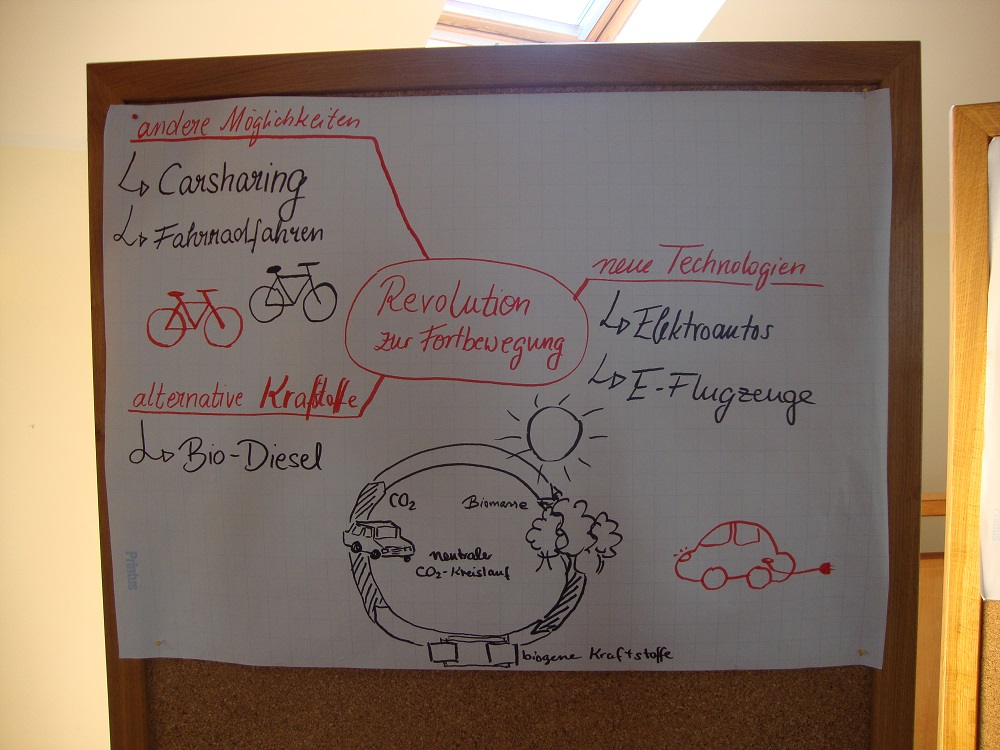 andere Möglichkeiten
Carsharing
Fahrradfahren
Revolution
zur Fortbewegung
neue Technologien
Elektroautos
E-Flugzeuge
alternative Kraftstoffe
Bio-Diesel
CO₂
Biomasse
neutraler
CO₂-Kreislauf
biogene Kraftstoffe
Printus